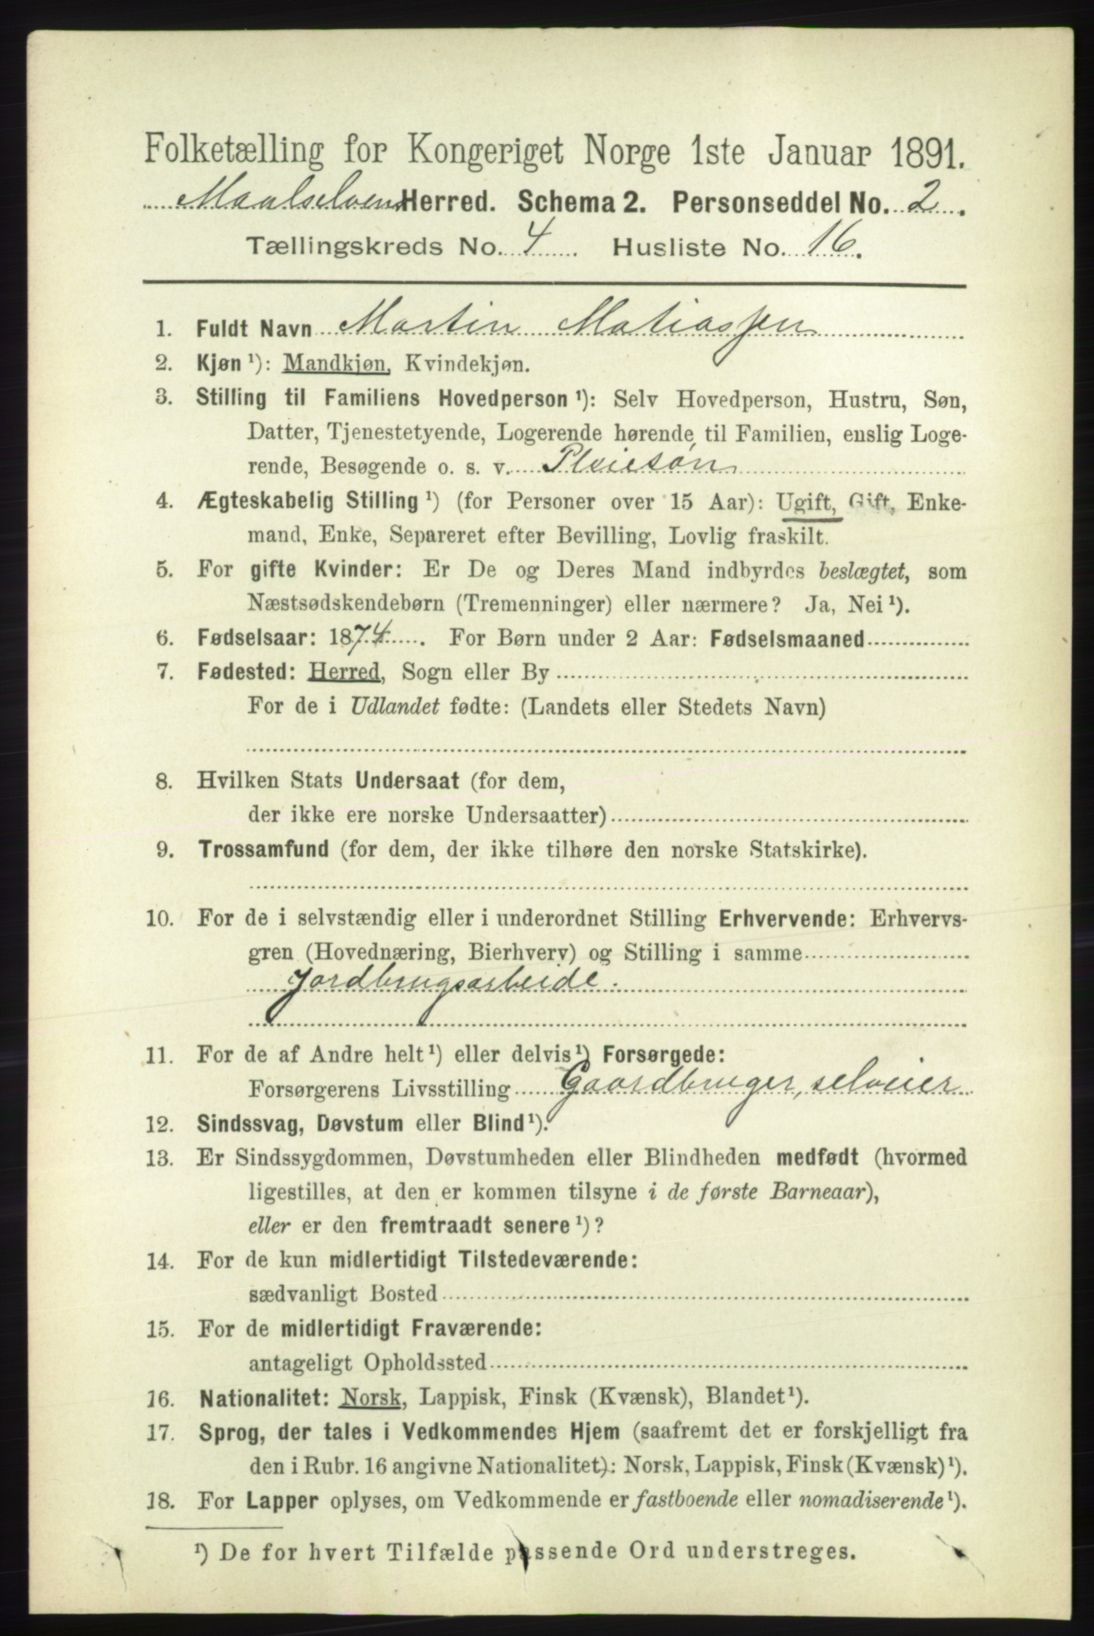 Folketælling for Kongeriget Norge 1ste Januar 1891.
Maalselvens Herred. Schema 2. Personseddel No. 2.
Tællingskreds No. 4. Husliste No. 16.
1. Fuldt Navn Martin Matiassen
2. Kjøn ¹): Mandkjøn, Kvindekjøn.
3. Stilling til Familiens Hovedperson ¹): Selv Hovedperson, Hustru, Søn,
Datter, Tjenestetyende, Logerende hørende til Familien, enslig Loge-
rende, Besøgende o. s. v. Pleiesøn
4. Ægteskabelig Stilling ¹) (for Personer over 15 Aar): Ugift, Gift, Enke-
mand, Enke, Separeret efter Bevilling, Lovlig fraskilt.
5. For gifte Kvinder: Er De og Deres Mand indbyrdes beslægtet, som
Næstsødskendebørn (Tremenninger) eller nærmere? Ja, Nei ¹).
6. Fødselsaar: 1874. For Børn under 2 Aar: Fødselsmaaned
7. Fødested: Herred, Sogn eller By
For de i Udlandet fødte: (Landets eller Stedets Navn)
8. Hvilken Stats Undersaat (for dem,
der ikke ere norske Undersaatter)
9. Trossamfund (for dem, der ikke tilhøre den norske Statskirke).
10. For de i selvstændig eller i underordnet Stilling Erhvervende: Erhvervs-
gren (Hovednæring, Bierhverv) og Stilling i samme
Jordbrugsarbeide.
11. For de af Andre helt ¹) eller delvis ¹) Forsørgede:
Forsørgerens Livsstilling Gaardbruger, selveier
12. Sindssvag, Døvstum eller Blind ¹).
13. Er Sindssygdommen, Døvstumheden eller Blindheden medfødt (hvormed
ligestilles, at den er kommen tilsyne i de første Barneaar),
eller er den fremtraadt senere ¹)?
14. For de kun midlertidigt Tilstedeværende:
sædvanligt Bosted
15. For de midlertidigt Fraværende:
antageligt Opholdssted
16. Nationalitet: Norsk, Lappisk, Finsk (Kvænsk), Blandet ¹).
17. Sprog, der tales i Vedkommendes Hjem (saafremt det er forskjelligt fra
den i Rubr. 16 angivne Nationalitet): Norsk, Lappisk, Finsk (Kvænsk) ¹).
18. For Lapper oplyses, om Vedkommende er fastboende eller nomadiserende ¹).
¹) De for hvert Tilfælde passende Ord understreges.